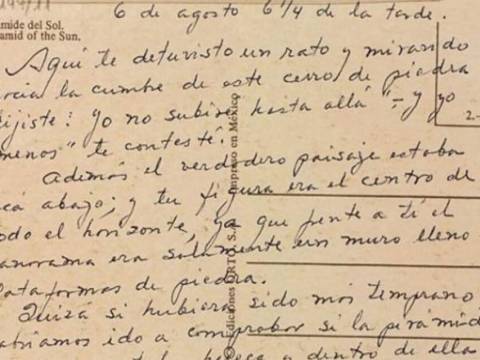 6 de agosto 6 1/4 de la tarde.
mide del Sol.
amid of the Sun.
Aquí te detuvisto un rato y mirando
acia la cumbre de este cerro de piedra
ijiste: Yo no subire hasta allá "- y yo
2-
menos" te contesté.
Además el verdadero paisaje estaba
cá abajo; y tu figura era el centro de
odo el horizonte, ya que frente a tí el
anorama era solamente un muro lleno
lataformas de piedra.
Quizá si hubiera sido más temprano
abriamos ido a comprobar si la pirámid
a dentro de ella
© Ediciones S.A. Impreso en México